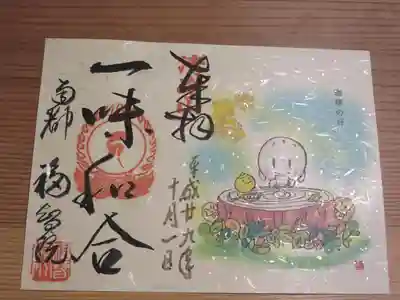 珈琲の日
奉拝
平成廿九年
十月一日
一味和合
南都 福智院